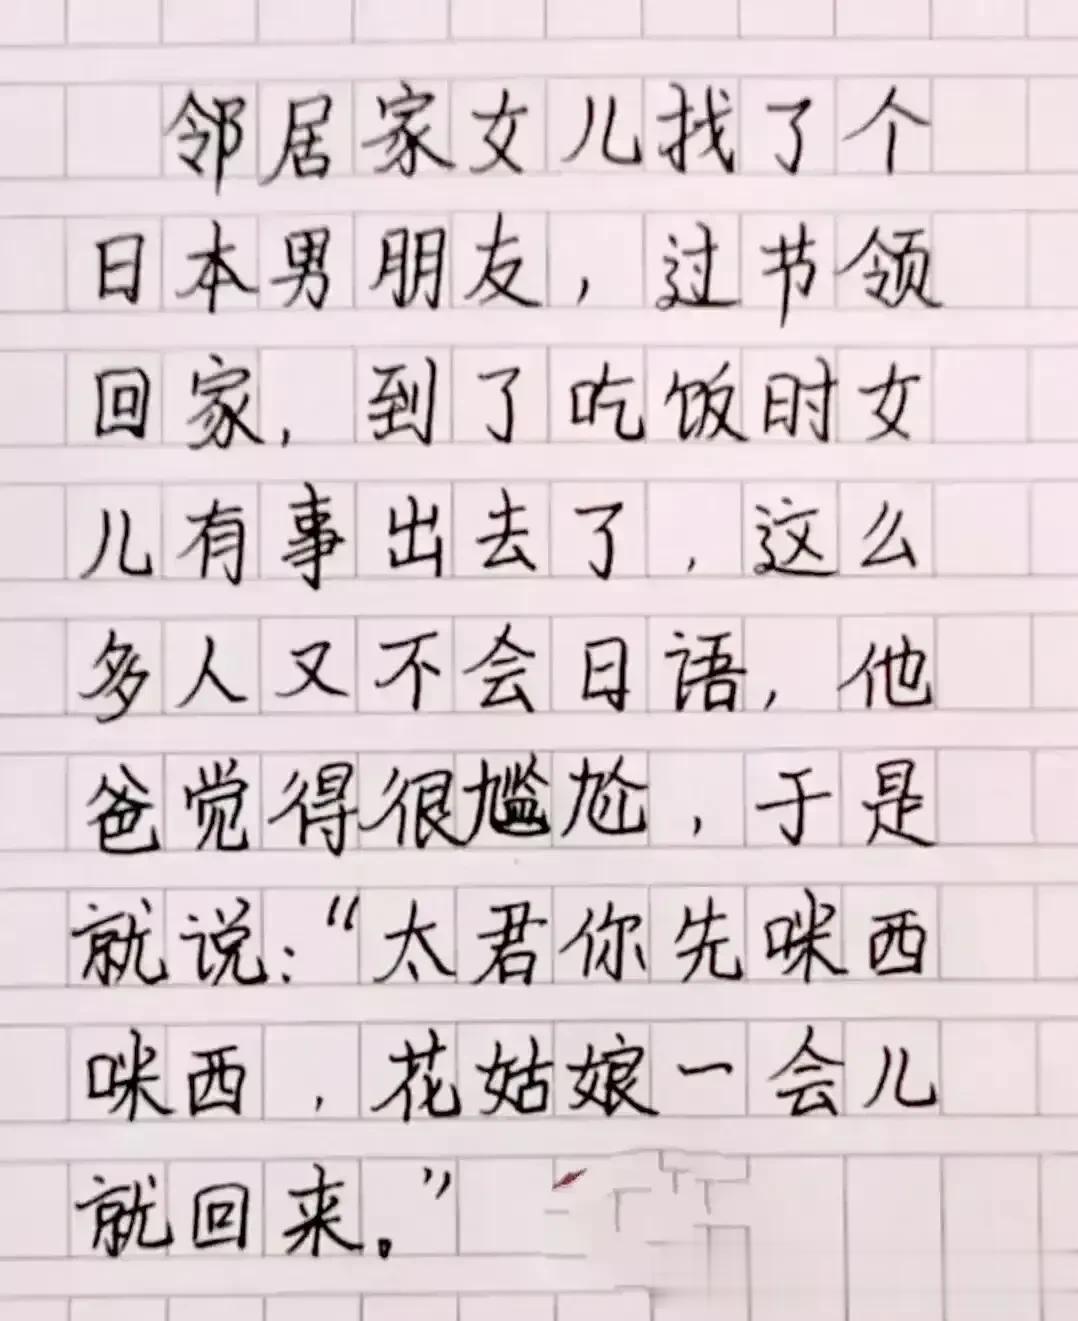 邻居家女儿找了个
日本男朋友，过节领
回家，到了吃饭时女
儿有事出去了，这么
多人又不会日语，他
爸觉得很尴尬，于是
就说：“太君你先咪西
咪西，花姑娘一会儿
就回来。”